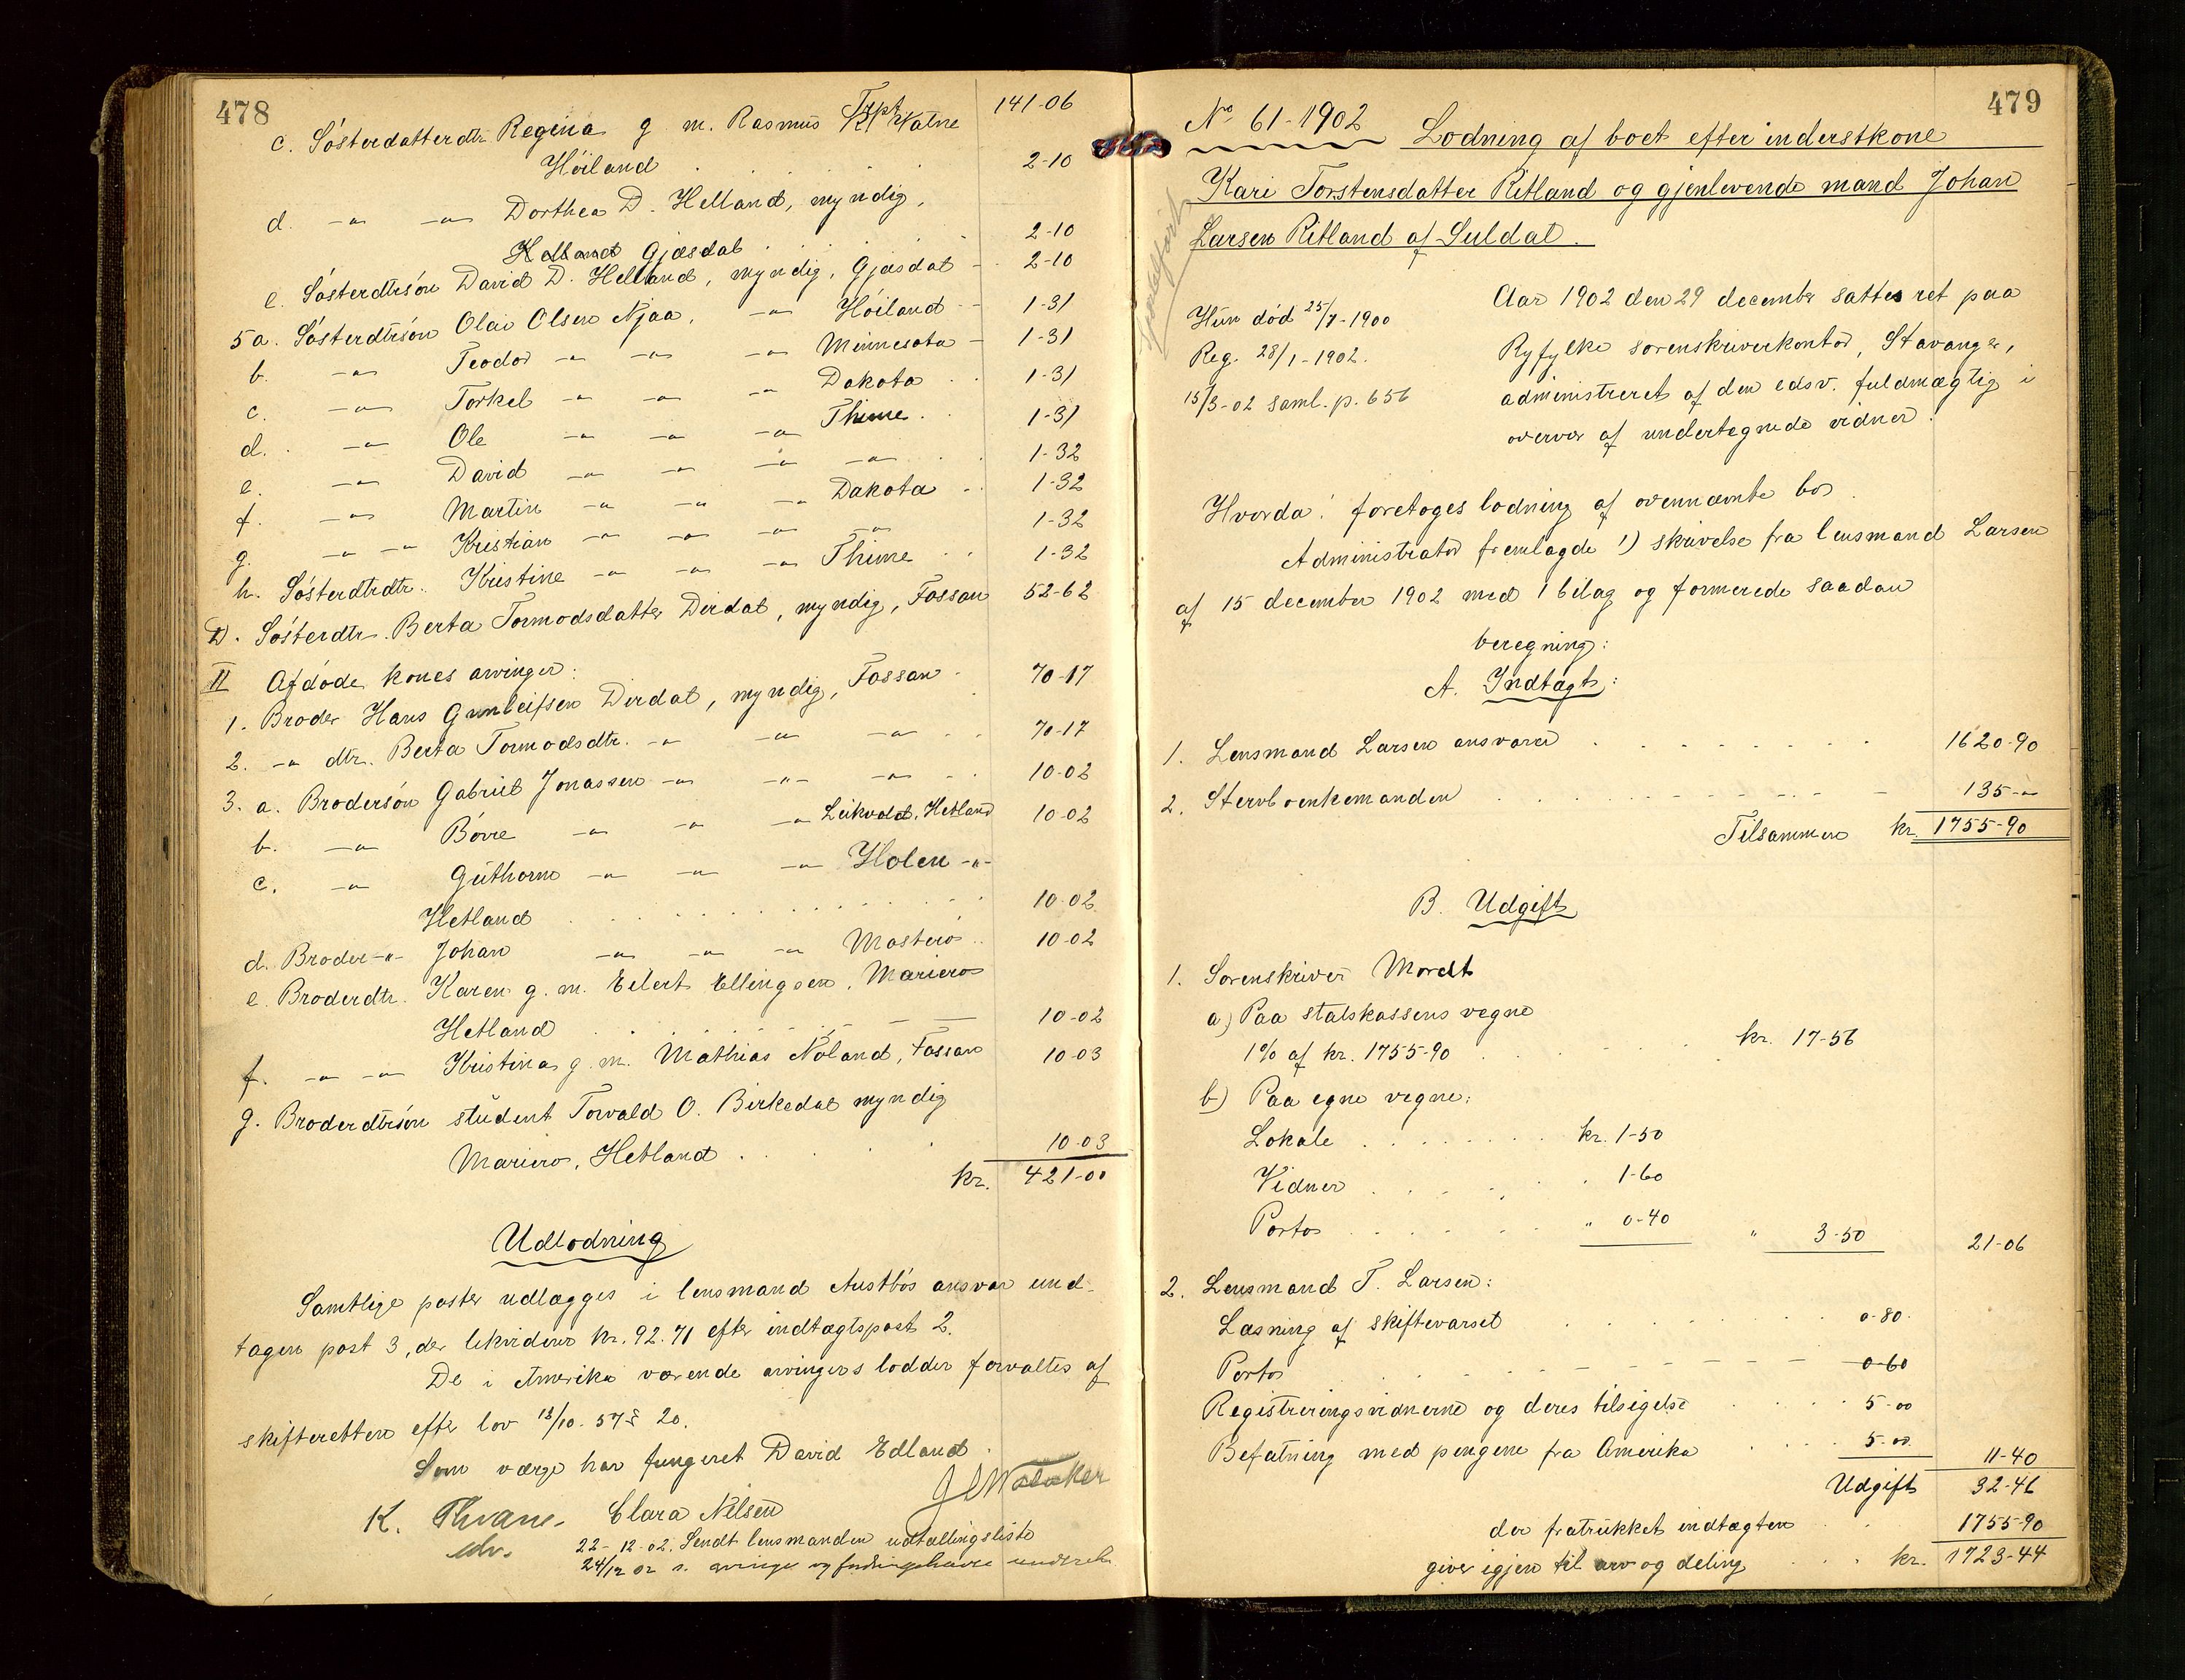 478
Trpt. 141-06
c. Søsterdatterdtr. Regina g. m. Rasmus K. Watne
Höiland . . . 2-10
d. -"- -"- Dorthea D. Helland, myndig,
Helland Gjæsdal . . . 2-10
e. Søsterdtrsön David D. Helland, myndig, Gjæsdal - 2-10
5 a. Søsterdtrsön Olai Olsen Njaa, -"- Höiland - 1-31
b. -"- Teodor -"- -"- -"- Minnesota - 1-31
c. -"- Torkel -"- -"- -"- Dakota . . 1-31
d. -"- Ole -"- -"- -"- Thime . 1-31
e. -"- David -"- -"- -"- -"- . 1-32
f. -"- Martin -"- -"- -"- Dakota . . 1-32
g. -"- -"- Kristian -"- -"- -"- -"- 1-32
h. Søsterdtrdtr. Kristine -"- -"- -"- Thime . . 1-32
D. Søsterdtr. Berta Tormodsdatter Dirdal, myndig, Fossan 52-62
II Afdøde kones arvinger:
1. Broder Hans Gunleifsen Dirdal, myndig, Fossan - 70-17
2. -"- dtr. Berta Tormodsdtr. -"- -"- -"- . . 70-17
3. a. Brodersön Gabriel Jonassen -"- -"- -"- . . 10-02
b. -"- Börre -"- -"- -"- Leikvold, Hetland 10-02
c. -"- Guthorm -"- -"- -"- Holen -"-
Hetland . . . 10-02
d. Broder -"- Johan -"- -"- -"- Mosterö . . 10-02
e. Broderdtr. Karen g. m. Eilert Ellingsen, Mariero
Hetland . . . 10-02
f. -"- -"- Kristina g. m. Mathias Nöland, Fossan 10-03
g. Broderdtrsön student Torvald O. Birkedal myndig
Mariero, Hetland . . . 10-03
kr. 421-00
Udlodning
Samtlige poster udlægges i lensmand Austbös ansvar und-
tagen post 3, der likviderer kr. 92.71 efter indtægtspost 2.
De i Amerika værende arvingers lodder forvaltes af
skifteretten efter lov 13/10. 57 § 20.
Som værge har fungeret David Edland.
K. Thrane. Clara Nilsen
22-12-02. Sendt lensmanden udtællingsliste
24/12 02 s. arvinge og
479
No 61-1902 Lodning af boet efter inderstkone
Kari Torstensdatter Ritland og gjenlevende mand Johan
Larsen Ritland af Suldal.
Hun död 25/7-1900
Reg. 28/1-1902.
15/3-02 saml. p. 656
Aar 1902 den 29 december sattes ret paa
Ryfylke sorenskriverkontor, Stavanger,
administreret af den edsv. fuldmægtig i
overvær af undertegnede vidner.
Hvorda: foretoges lodning af ovennævnte bo.
Administrator fremlagde 1) skrivelse fra lensmand Larsen
af 15 december 1902 med 1 bilag og formerede saadan
beregning:
A. Indtægt:
1. Lensmand Larsen ansvarer . . . 1620-90
2. Stervboenkemanden . . . 135-"-
Tilsammen kr. 1755-90
B. Udgift
1. Sorenskriver Mordt
a) Paa statskassens vegne
1% af kr. 1755-90 . . . kr. 17-56
b) Paa egne vegne:
Lokale . . . kr. 1-50
Vidner . . . 1-60
Porto . . . " 0-40 " 3-50 21-06
2. Lensmand T. Larsen:
Læsning af skiftevarsel . . . 0-80.
Porto . . . 0-60
Registreringsvidnerne og deres tilsigelse . . . 5-00
Befatning med pengene fra Amerika . . . 5-00. 11-40
Udgift 32-46
der fratrukket indtægten . . 1755-90
giver igjen til arv og deling . . . kr. 1723-44